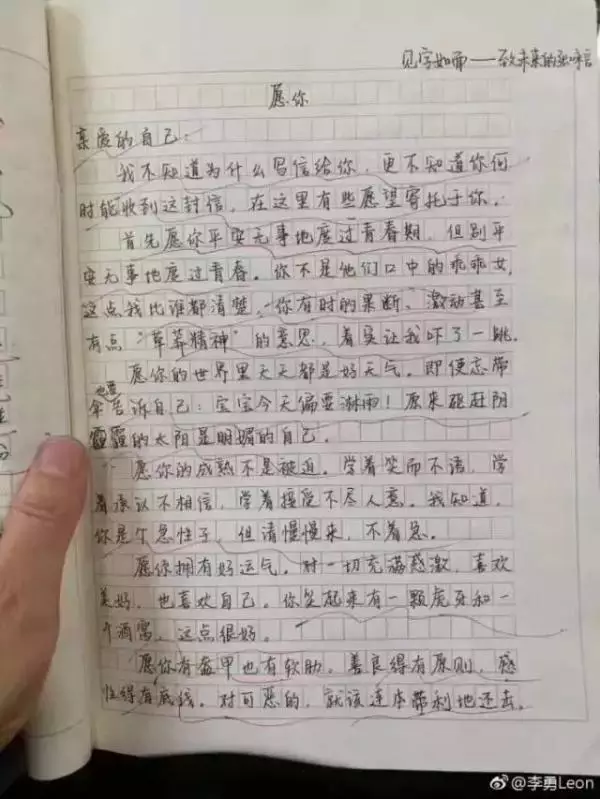 见字如面——致未来的亚咪信
愿你
亲爱的自己：
我不知道为什么写信给你，更不知道你何
时能收到这封信，在这里有些愿望寄托于你。
首先愿你平安无事地度过青春期，但别平
安无事地度过青春。你不是他们口中的乖乖女，
这点我比谁都清楚，你有时的果断、激动甚至
有点“草莽精神”的意思，着实让我吓了一跳。
愿你的世界里天天都是好天气。即使忘带
伞也要告诉自己：宝宝今天偏要淋雨！原来驱赶阴
霾的太阳是明媚的自己。
愿你的成熟不是被迫。学着笑而不语，学
着承认不相信，学着接受不尽人意。我知道，
你是个急性子，但请慢慢来，不着急。
愿你拥有好运气。对一切充满感激，喜欢
美好，也喜欢自己。你笑起来有一颗虎牙和一
个酒窝，这点很好。
愿你有盔甲也有软肋。善良得有原则，感
性得有底线。对可恶的，就该连本带利地还击。
@李勇Leon